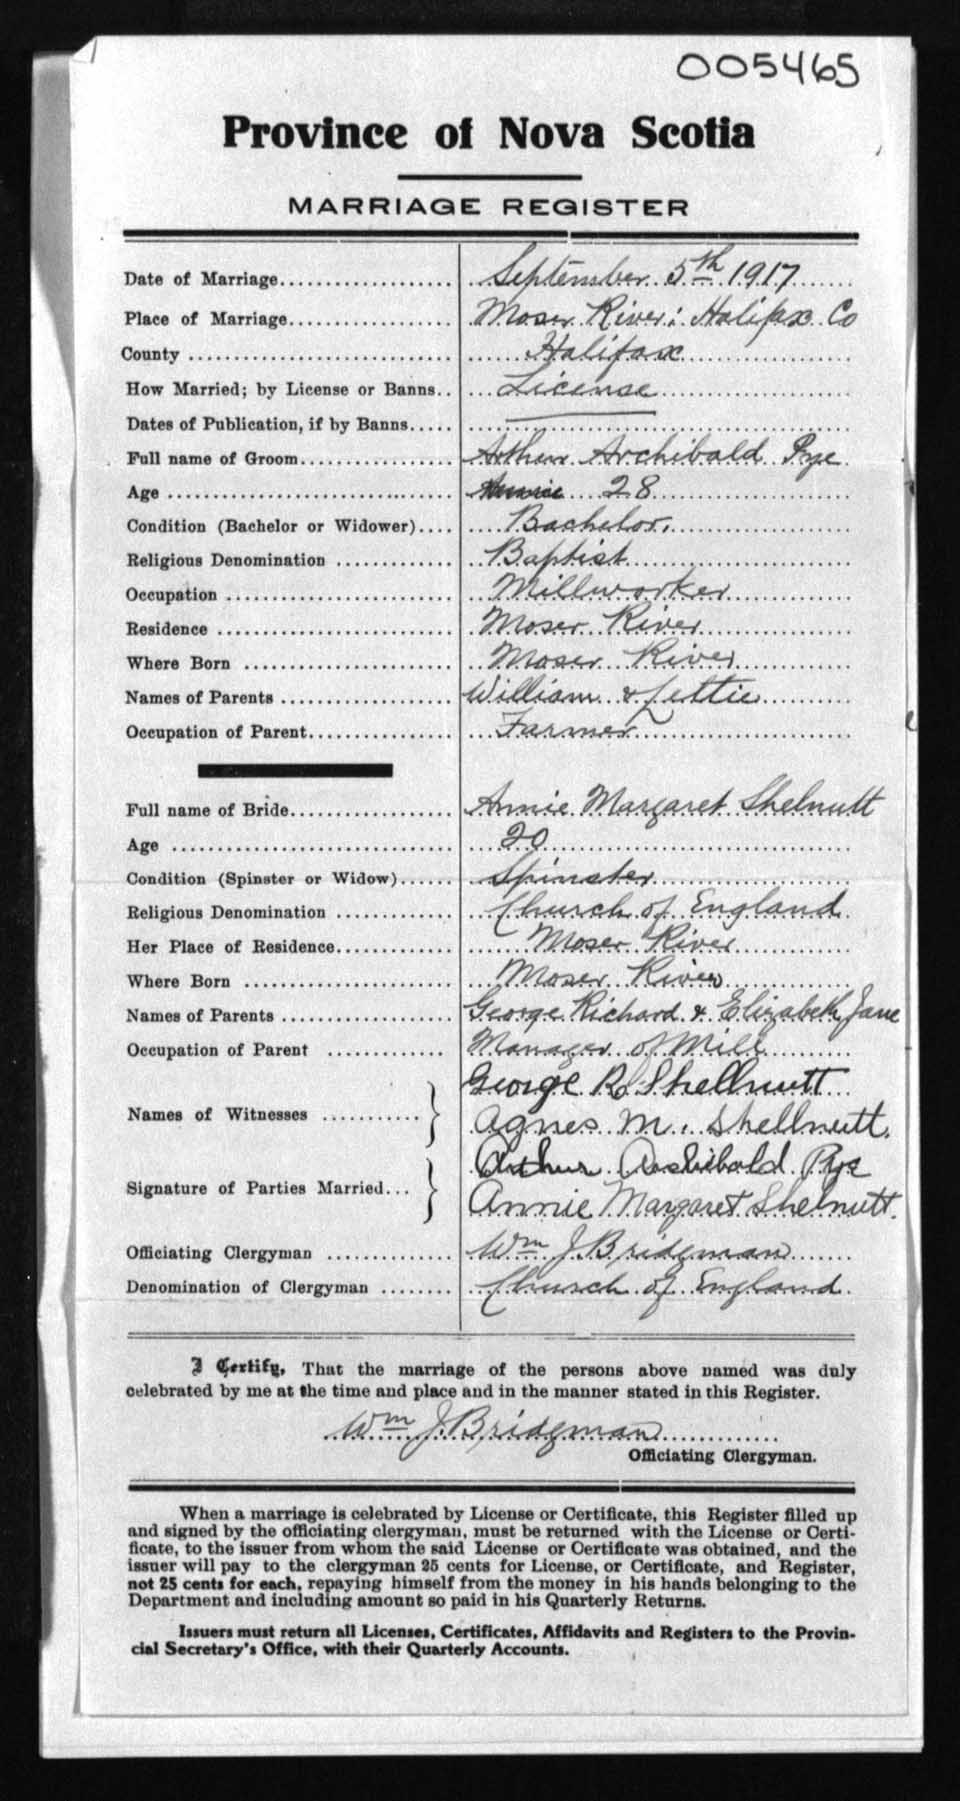 005465
Province of Nova Scotia
MARRIAGE REGISTER
Date of Marriage................... September 5th 1917
Place of Marriage.................. Moser River: Halifax Co
County ............................. Halifax
How Married; by License or Banns.. License
Dates of Publication, if by Banns.....
Full name of Groom................. Arthur Archibald Pye
Age ................................ 28
Condition (Bachelor or Widower).... Bachelor.
Religious Denomination ............ Baptist
Occupation ......................... Millworker
Residence .......................... Moser River
Where Born ........................ Moser River
Names of Parents ................... William & Lettie
Occupation of Parent................ Farmer
Full name of Bride.................. Annie Margaret Shelnutt
Age ................................ 20
Condition (Spinster or Widow)...... Spinster
Religious Denomination ............ Church of England
Her Place of Residence............. Moser River
Where Born ........................ Moser River
Names of Parents .................. George Richard & Elizabeth Jane
Occupation of Parent ............. Manager of Mill
George R. Shellnutt
Names of Witnesses ...........
Agnes M. Shellnutt.
Arthur Archibald Pye
Signature of Parties Married...
Annie Margaret Shelnutt.
Officiating Clergyman ............. Wm J. Bridgman
Denomination of Clergyman ........ Church of England
I Certify, That the marriage of the persons above named was duly
celebrated by me at the time and place and in the manner stated in this Register.
Wm J. Bridgman
Officiating Clergyman.
When a marriage is celebrated by License or Certificate, this Register filled up
and signed by the officiating clergyman, must be returned with the License or Certi-
ficate, to the issuer from whom the said License or Certificate was obtained, and the
issuer will pay to the clergyman 25 cents for License, or Certificate, and Register,
not 25 cents for each, repaying himself from the money in his hands belonging to the
Department and including amount so paid in his Quarterly Returns.
Issuers must return all Licenses, Certificates, Affidavits and Registers to the Provin-
cial Secretary's Office, with their Quarterly Accounts.